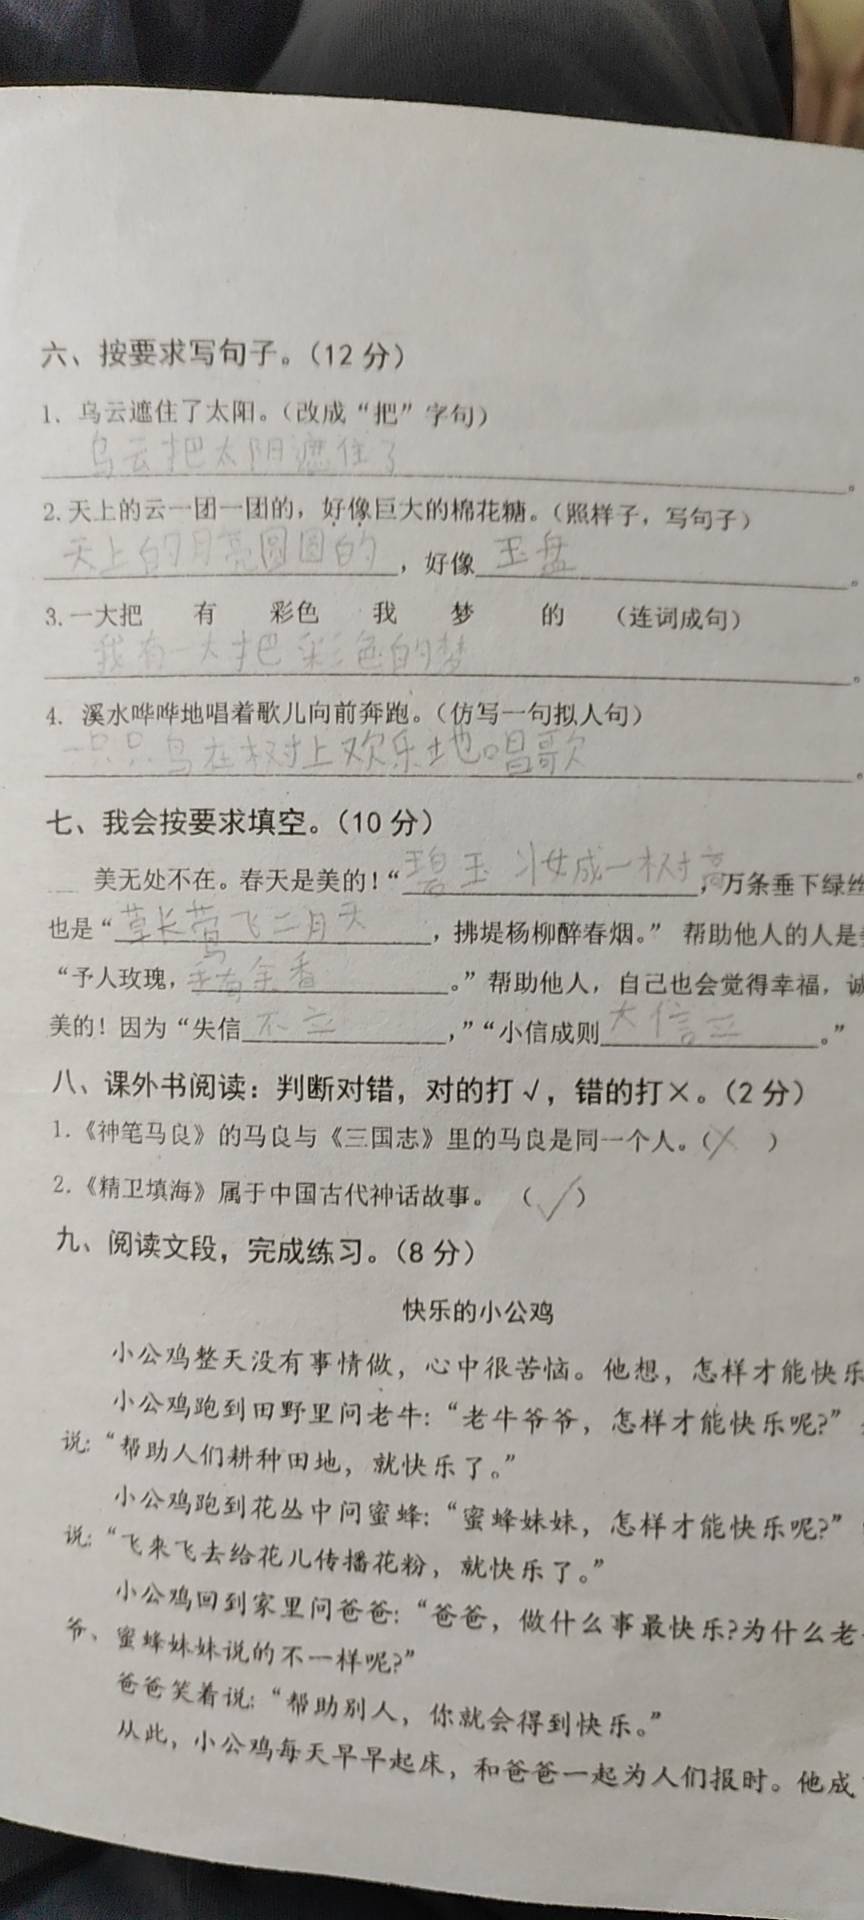 六、按要求写句子。(12 分)
1、乌云遮住了太阳。(改成“把”字句)
乌云把太阳遮住了。
2.天上的云一团一团的，好像巨大的棉花糖。(照样子，写句子)
天上的月亮圆圆的，好像玉盘。
3.一大把 有 彩色 我 梦 的 (连词成句)
我有一大把彩色的梦。
4. 溪水哗哗地唱着歌儿向前奔跑。(仿写一句拟人句)
一只只鸟在树上欢乐地唱歌。
七、我会按要求填空。(10 分)
美无处不在。春天是美的!“碧玉妆成一树高，万条垂下绿丝
也是“草长莺飞二月天，拂堤杨柳醉春烟。” 帮助他人的人是
“予人玫瑰，手有余香。”帮助他人，自己也会觉得幸福，诚
美的! 因为“失信不立，”“小信成则大信立。”
八、课外书阅读：判断对错，对的打√，错的打×。(2 分)
1.《神笔马良》的马良与《三国志》里的马良是同一个人。(× )
2.《精卫填海》属于中国古代神话故事。 (√)
九、阅读文段，完成练习。(8 分)
快乐的小公鸡
小公鸡整天没有事情做，心中很苦恼。他想，怎样才能快乐
小公鸡跑到田野里问老牛:“老牛爷爷，怎样才能快乐呢?”
说:“帮助人们耕种田地，就快乐了。”
小公鸡跑到花丛中问蜜蜂:“蜜蜂妹妹，怎样才能快乐呢?”
说:“飞来飞去给花儿传播花粉，就快乐了。”
小公鸡回到家里问爸爸:“爸爸，做什么事最快乐?为什么老
爷、蜜蜂妹妹说的不一样呢?”
爸爸笑着说:“帮助别人，你就会得到快乐。”
从此，小公鸡每天早早起床，和爸爸一起为人们报时。他成